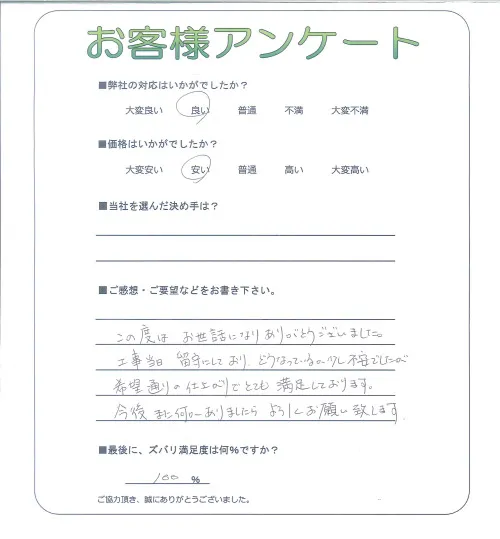 お客様アンケート
■弊社の対応はいかがでしたか？
大変良い 良い 普通 不満 大変不満
■価格はいかがでしたか？
大変安い 安い 普通 高い 大変高い
■当社を選んだ決め手は？
■ご感想・ご要望などをお書き下さい。
この度は お世話になり ありがとうございました。
工事当日 留守にしており、どうなっているか少し不安でしたが
希望通りの仕上がりでとても 満足しております。
今後 また何かありましたら よろしくお願い致します。
■最後に、ズバリ満足度は何%ですか？
100 %
ご協力頂き、誠にありがとうございました。